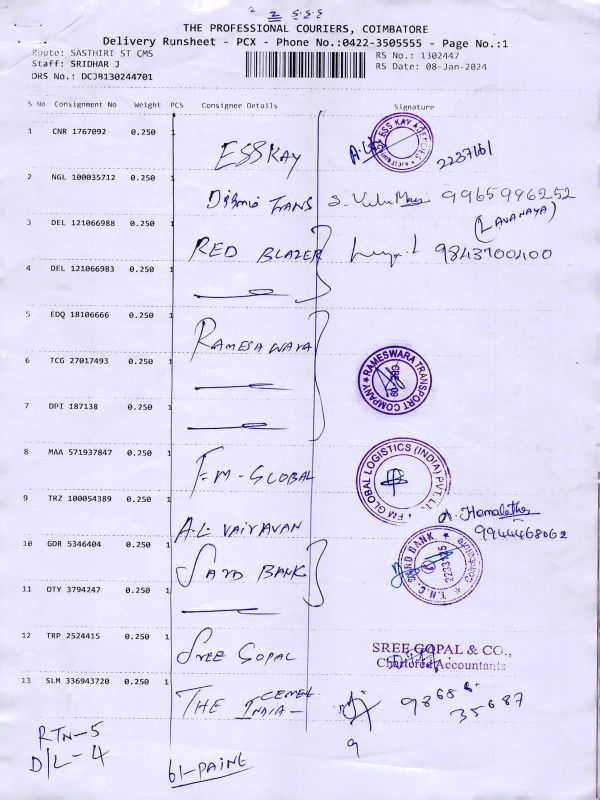 THE PROFESSIONAL COURIERS, COIMBATORE
Delivery Runsheet - PCX - Phone No.:0422-3505555 - Page No.:1
Route: SASTHIRI ST CMS RS No.: 1302447
Staff: SRIDHAR J RS Date: 08-Jan-2024
DRS No.: DCJB130244701
S No Consignment No Weight PCS Consignee Details Signature
1 CNR 1767092 0.250 1 ESSKAY ESS KAY AGENCIES
2 NGL 100035712 0.250 1 TRANS 9965996252
(LAVANAYA)
3 DEL 121066988 0.250 1 RED BLAZER
4 DEL 121066983 0.250 1
5 EDQ 18106666 0.250 1 RAMESHWARA
6 TCG 27017493 0.250 1 RAMESWARA TRANSPORT COMPANY
7 DPI 187138 0.250 1
8 MAA 571937847 0.250 1 F.M-GLOBAL FM GLOBAL LOGISTICS (INDIA) PVT. LT.
9 TRZ 100054389 0.250 1 A.L. VAIRAVAN A. Hemalatha
9944468062
10 GDR 5346404 0.250 1 SARD BANK
11 OTY 3794247 0.250 1
12 TRP 2524415 0.250 1 SREE GOPAL SREE GOPAL & CO.,
Chartered Accountants
13 SLM 336943720 0.250 1 THE CEMENT INDIA- 98658 35687
9
RTN-5
D/L-4
61-PAINE